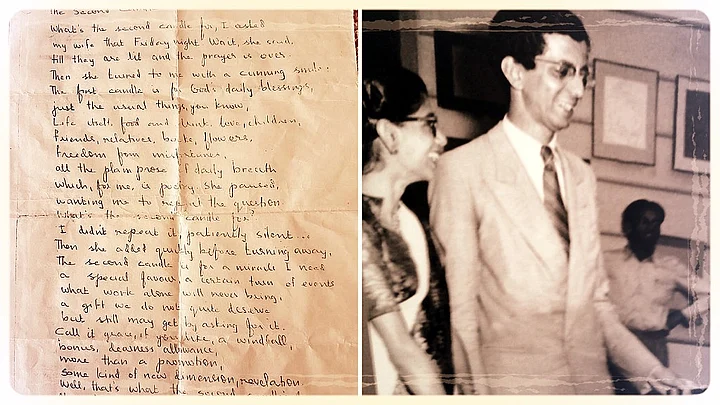 The Second
What's the second candle for, I asked
my wife that Friday night. Wait, she said,
till they are lit and the prayer is over.
Then she turned to me with a cunning smile:
The first candle is for God's daily blessings,
just the usual things, you know,
Life itself, food and drink, love, children,
friends, relatives, books, flowers,
freedom from misfortunes,
all the plain prose of daily breath
which, for me, is poetry. She paused,
wanting me to repeat the question
What's the second candle for?
I didn't repeat it, patiently silent...
Then she added quickly before turning away,
The second candle is for a miracle I need
a special favour, a certain turn of events
what work alone will never bring,
a gift we do not quite deserve
but still may get by asking for it.
Call it grace, if you like, a windfall,
bonus, dearness allowance,
more than a promotion,
some kind of new dimension, revelation.
Well, that's what the second